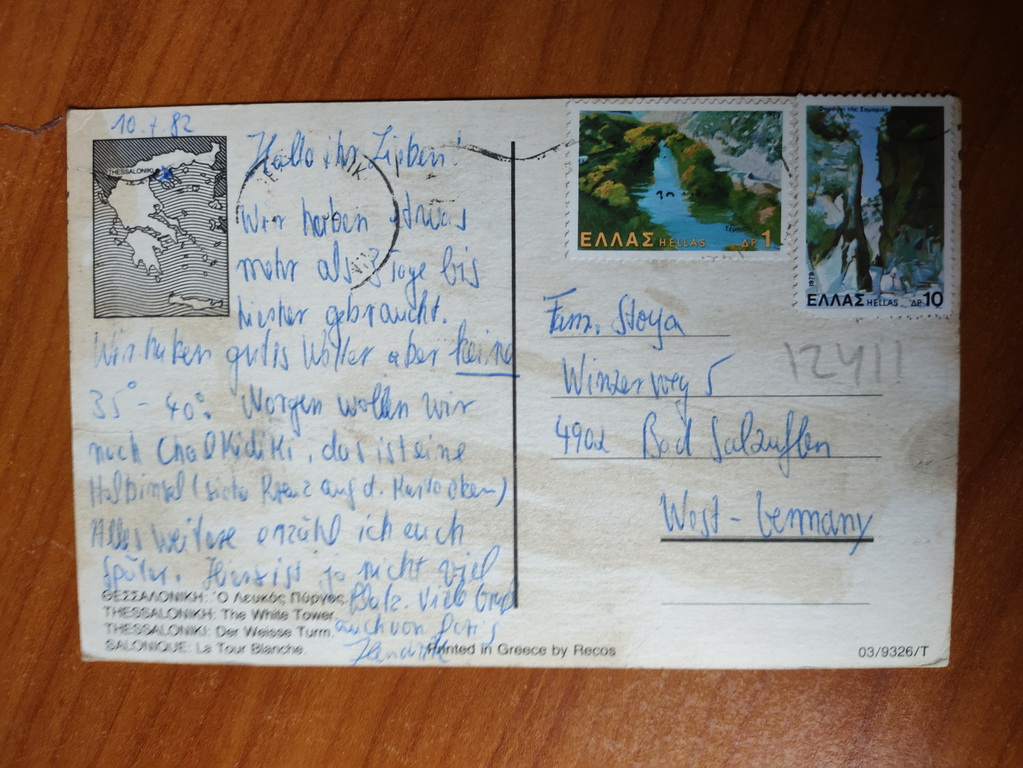 10.7.82
THESSALONIKI
Hallo ihr Lieben!
Wir haben etwas
mehr als 3 Tage bis
hierher gebraucht.
Wir haben gutes Wetter aber keine
35° - 40°. Morgen wollen wir
nach Chalkidiki, das ist eine
Halbinsel (siehe Kreuz auf d. Karte oben)
Alles weitere erzähl ich euch
später. Hier ist ja nicht viel
Platz. Viele Grüße
auch von Doris
Hendrik
ΘΕΣΣΑΛΟΝΙΚΗ: Ὁ Λευκός Πύργος.
THESSALONIKH: The White Tower.
THESSALONIKI: Der Weisse Turm.
SALONIQUE: La Tour Blanche.
Printed in Greece by Recos
03/9326/T
ΕΛΛΑΣ HELLAS ΔΡ 1
1979
ΕΛΛΑΣ HELLAS ΔΡ 10
Fam. Stoya
Winzerweg 5
4902 Bad Salzuflen
West-Germany
12411